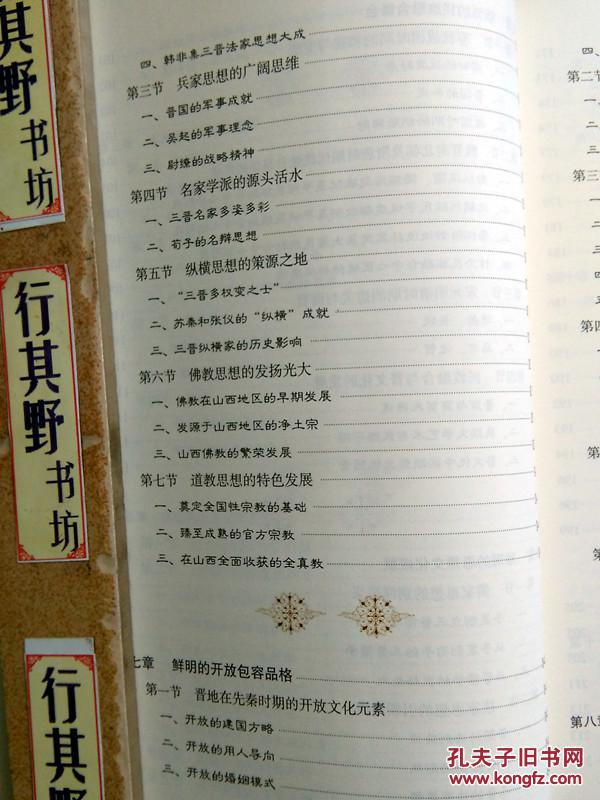 行其野书坊
行其野书坊
行其野
四、韩非集三晋法家思想大成
第三节 兵家思想的广阔思维
一、晋国的军事成就
二、吴起的军事理念
三、尉缭的战略精神
第四节 名家学派的源头活水
一、三晋名家多姿多彩
二、荀子的名辩思想
第五节 纵横思想的策源之地
一、“三晋多权变之士”
二、苏秦和张仪的“纵横”成就
三、三晋纵横家的历史影响
第六节 佛教思想的发扬光大
一、佛教在山西地区的早期发展
二、发源于山西地区的净土宗
三、山西佛教的繁荣发展
第七节 道教思想的特色发展
一、奠定全国性宗教的基础
二、臻至成熟的官方宗教
三、在山西全面收获的全真教
七章 鲜明的开放包容品格
第一节 晋地在先秦时期的开放文化元素
一、开放的建国方略
二、开放的用人导向
三、开放的婚姻模式
四
第二节
一
二
三
第三
第四
第
第
第八章
孔夫子旧书网
www.kongfz.com